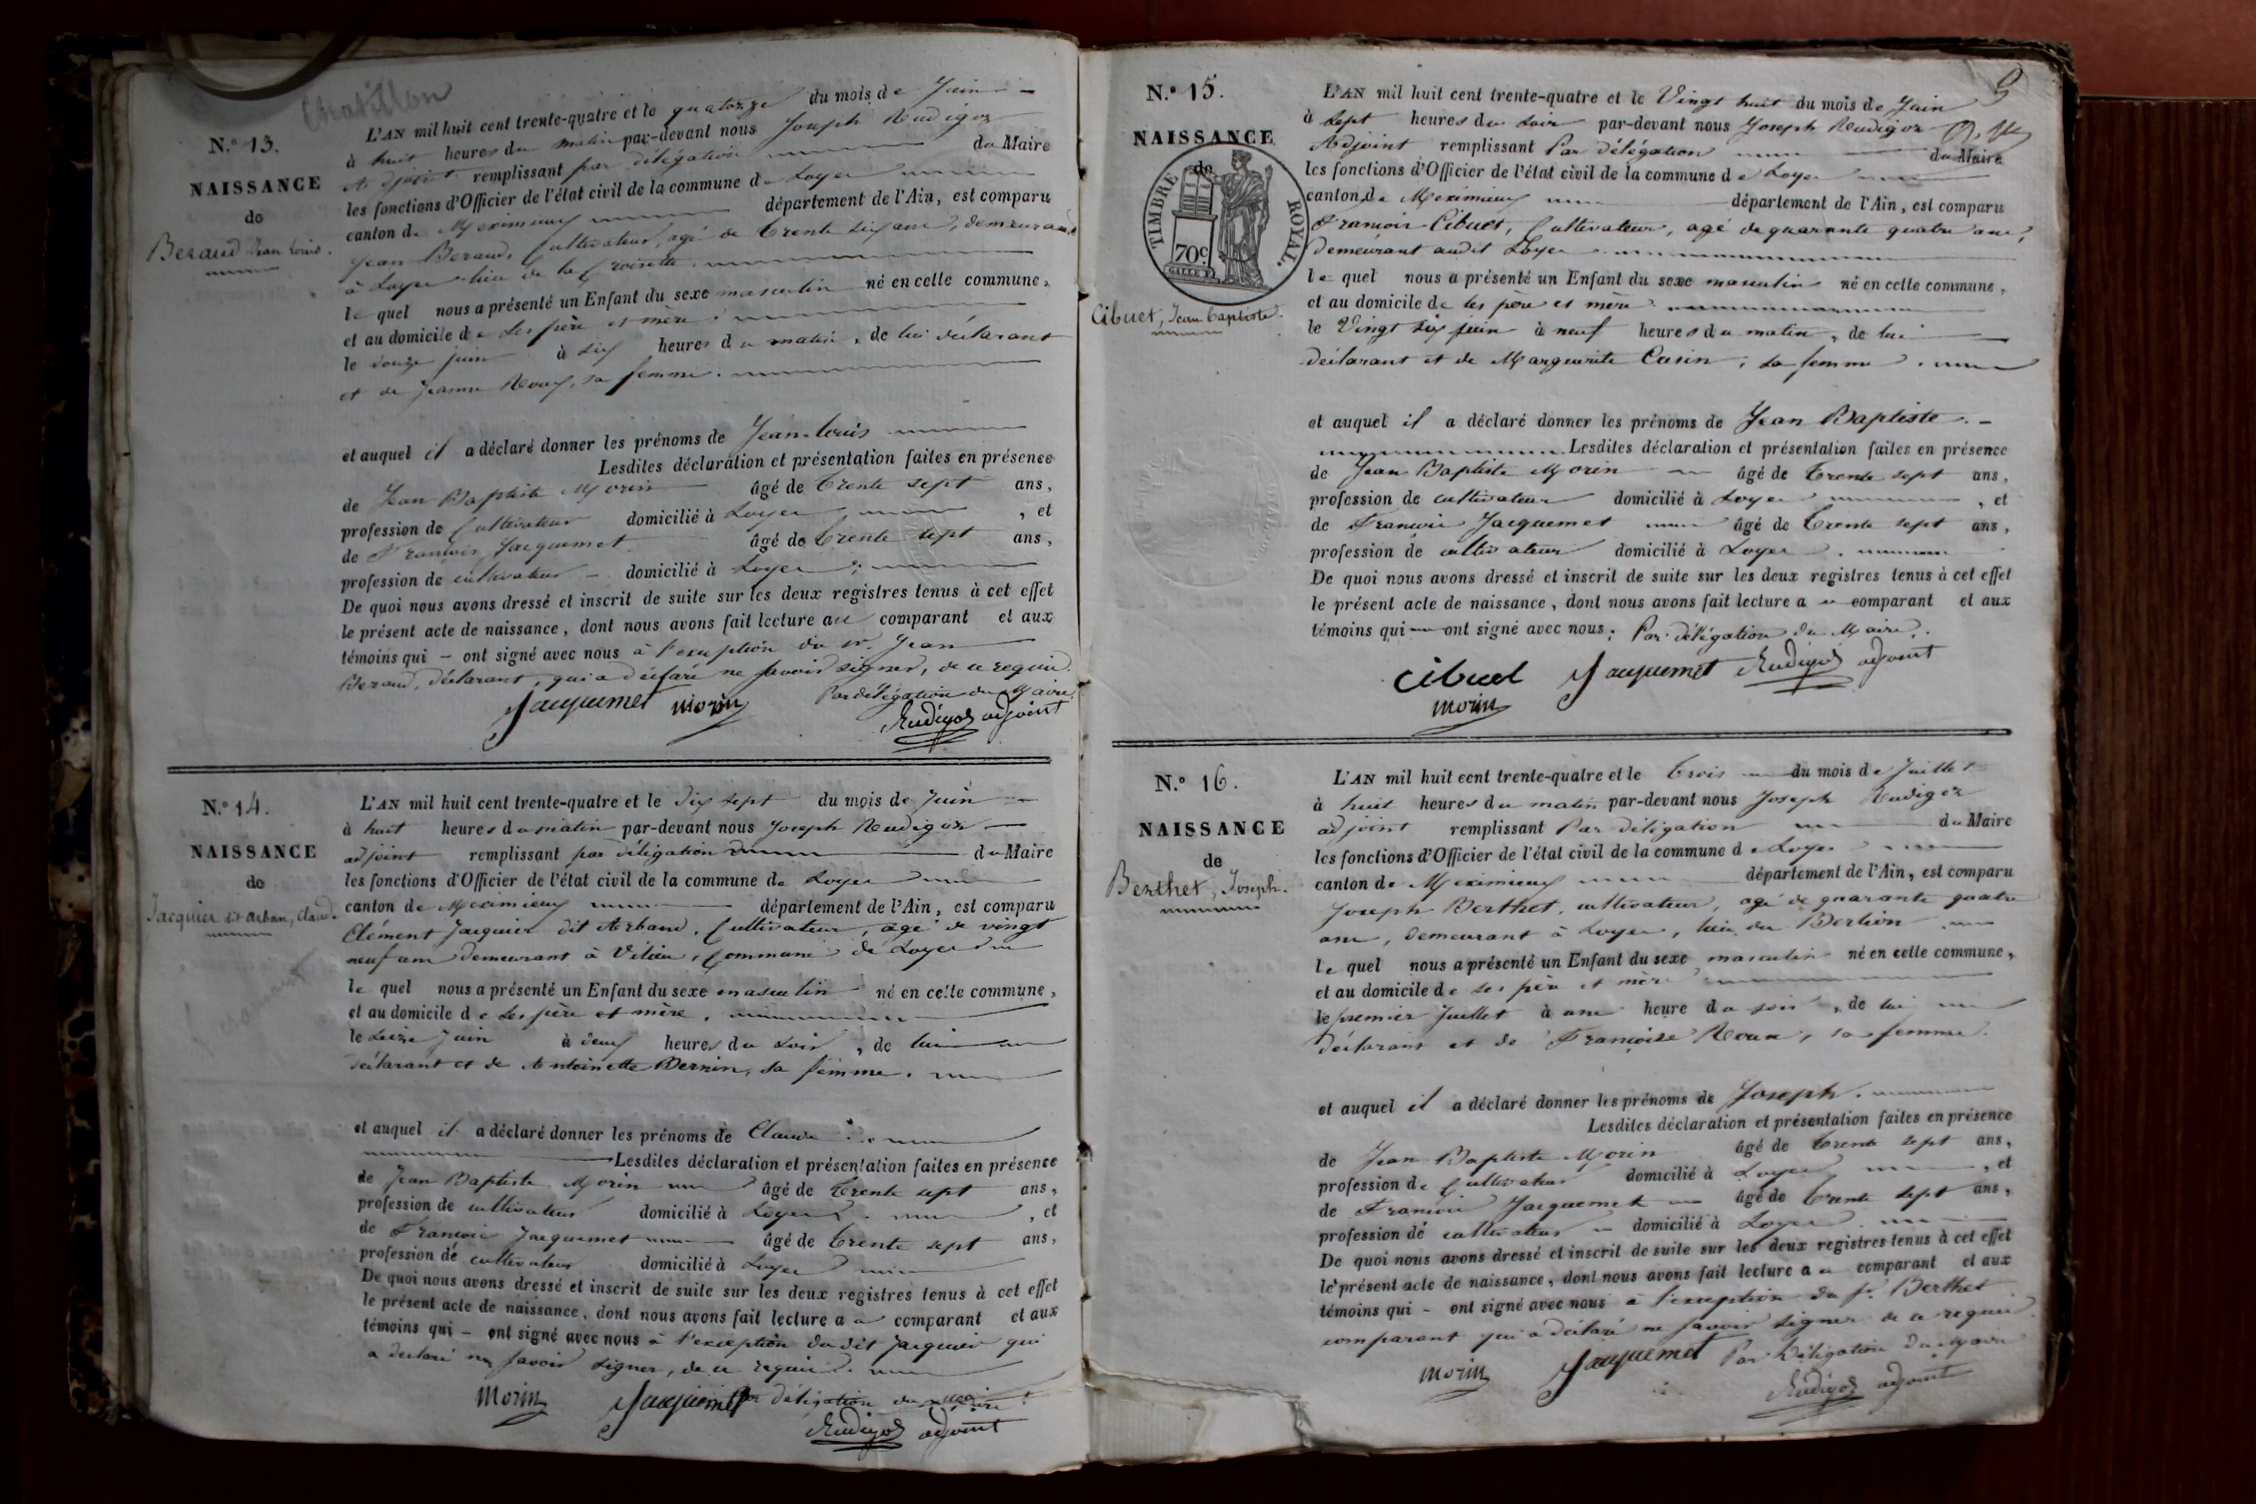 Chatillon
N.º 13.
NAISSANCE
de
Beraud Jean Louis.
L'AN mil huit cent trente-quatre et le quatorze du mois de Juin
à huit heures du matin par-devant nous Joseph Rudigoz
adjoint remplissant par délégation du Maire
les fonctions d'Officier de l'état civil de la commune de Loyes
canton de Meximieux département de l'Ain, est comparu
Jean Beraud, Cultivateur, agé de trente six ans, demeurant
à Loyes lieu de la Croisette
le quel nous a présenté un Enfant du sexe masculin né en celle commune,
et au domicile de ses père et mère,
le douze juin à six heures du matin, de lui déclarant
et de Jeanne Roux, sa femme.
et auquel il a déclaré donner les prénoms de Jean-Louis
Lesdites déclaration et présentation faites en présence
de Jean Baptiste Morin âgé de trente sept ans,
profession de Cultivateur domicilié à Loyes, et
de François Jacquemet âgé de trente sept ans,
profession de cultivateur domicilié à Loyes;
De quoi nous avons dressé et inscrit de suite sur les deux registres tenus à cet effet
le présent acte de naissance, dont nous avons fait lecture au comparant et aux
témoins qui - ont signé avec nous à l'exception du Sr. Jean
Beraud, déclarant, qui a déclaré ne savoir signer, de ce requis.
Par délégation du Maire
Jacquemet Morin
Rudigoz adjoint
N.º 14.
NAISSANCE
de
Jacquier dit Arban, Claude.
L'AN mil huit cent trente-quatre et le dix sept du mois de Juin
à huit heures du matin par-devant nous Joseph Rudigoz
adjoint remplissant par délégation du Maire
les fonctions d'Officier de l'état civil de la commune de Loyes
canton de Meximieux département de l'Ain, est comparu
Clément Jacquier dit Arband, Cultivateur, agé de vingt
neuf ans demeurant à Vilieu, Commune de Loyes
le quel nous a présenté un Enfant du sexe masculin né en celle commune,
et au domicile de ses père et mère,
le seize Juin à deux heures du soir, de lui
déclarant et de Antoinette Bernin, sa femme.
et auquel il a déclaré donner les prénoms de Claude
Lesdites déclaration et présentation faites en présence
de Jean Baptiste Morin âgé de trente sept ans,
profession de cultivateur domicilié à Loyes, et
de François Jacquemet âgé de trente sept ans,
profession de cultivateur domicilié à Loyes
De quoi nous avons dressé et inscrit de suite sur les deux registres tenus à cet effet
le présent acte de naissance, dont nous avons fait lecture au comparant et aux
témoins qui - ont signé avec nous à l'exception dudit Jacquier qui
a declaré ne savoir signer, de ce requis.
Morin Jacquemet Par délégation du Maire
Rudigoz adjoint
9
N.º 15.
NAISSANCE
de
TIMBRE ROYAL.
70c.
Cibuet, Jean Baptiste.
L'AN mil huit cent trente-quatre et le Vingt huit du mois de Juin
à sept heures du soir par-devant nous Joseph Rudigoz
Adjoint remplissant Par délégation du Maire
les fonctions d'Officier de l'état civil de la commune de Loyes
canton de Meximieux département de l'Ain, est comparu
François Cibuet, Cultivateur, agé de quarante quatre ans,
demeurant audit Loyes
le quel nous a présenté un Enfant du sexe masculin né en celle commune,
et au domicile de ses père et mère
le Vingt six juin à neuf heures du matin, de lui
déclarant et de Marguerite Casin, sa femme.
et auquel il a déclaré donner les prénoms de Jean Baptiste. -
Lesdites déclaration et présentation faites en présence
de Jean Baptiste Morin âgé de trente sept ans,
profession de cultivateur domicilié à Loyes, et
de François Jacquemet âgé de trente sept ans,
profession de cultivateur domicilié à Loyes.
De quoi nous avons dressé et inscrit de suite sur les deux registres tenus à cet effet
le présent acte de naissance, dont nous avons fait lecture au comparant et aux
témoins qui ont signé avec nous. Par délégation du Maire.
Cibuet Jacquemet Rudigoz adjoint
Morin
N.º 16.
NAISSANCE
de
Berthet, Joseph.
L'AN mil huit cent trente-quatre et le trois du mois de Juillet
à huit heures du matin par-devant nous Joseph Rudigoz
adjoint remplissant Par délégation du Maire
les fonctions d'Officier de l'état civil de la commune de Loyes
canton de Meximieux département de l'Ain, est comparu
Joseph Berthet, cultivateur, agé de quarante quatre
ans, demeurant à Loyes, lieu du Bertion
le quel nous a présenté un Enfant du sexe masculin né en celle commune,
et au domicile de ses père et mère
le premier Juillet à une heure du soir, de lui
déclarant et de Françoise Roux, sa femme.
et auquel il a déclaré donner les prénoms de Joseph.
Lesdites déclaration et présentation faites en présence
de Jean Baptiste Morin âgé de trente sept ans,
profession de Cultivateur domicilié à Loyes, et
de François Jacquemet âgé de trente sept ans,
profession de cultivateur - domicilié à Loyes.
De quoi nous avons dressé et inscrit de suite sur les deux registres tenus à cet effet
le présent acte de naissance, dont nous avons fait lecture au comparant et aux
témoins qui - ont signé avec nous à l'exception du Sr. Berthet
comparant qui a déclaré ne savoir signer de ce requis.
Morin Jacquemet Par Délégation du Maire
Rudigoz adjoint